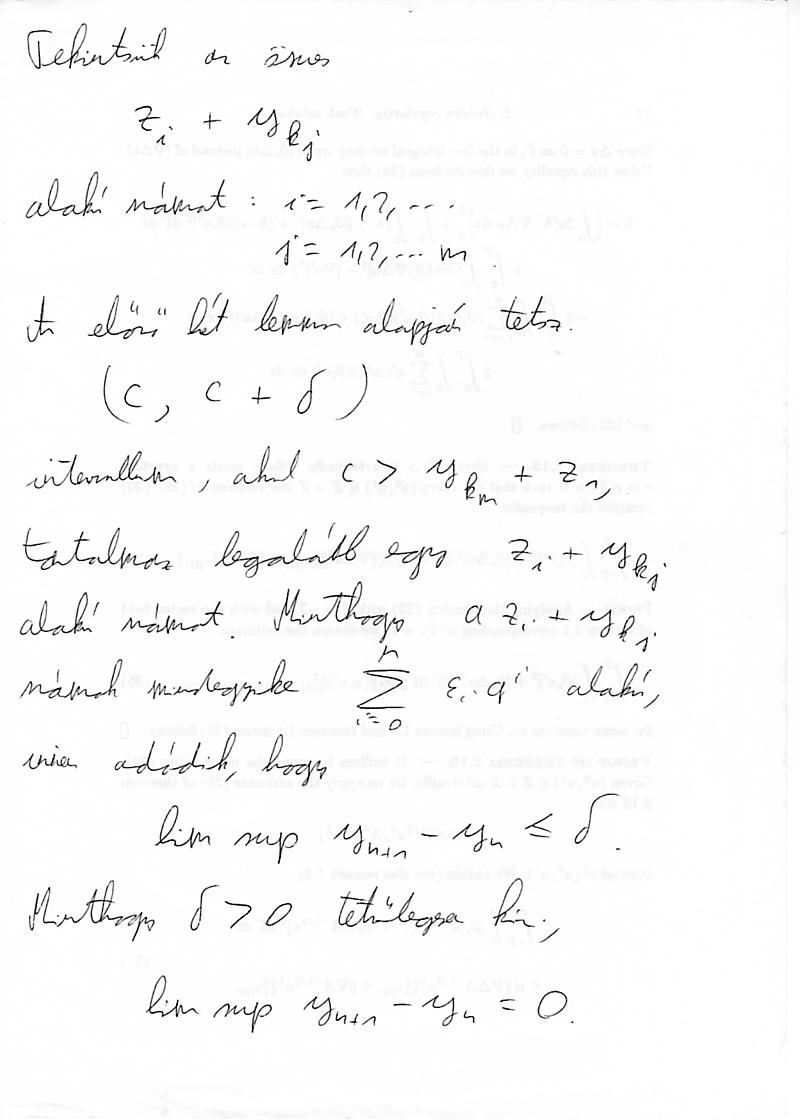 Tekintsük az összes
z_i + y_{k_j}
alakú számot : i = 1,2, ...
j = 1,2, ... m .
Az előző két lemma alapján tetsz.
(c, c + δ)
intervallum, ahol c > y_{k_m} + z_1,
tartalmaz legalább egy z_i + y_{k_j}
alakú számot. Minthogy a z_i + y_{k_j}
számok mindegyike \sum_{i=0}^{n} ε_i q^i alakú,
innen adódik, hogy
lim sup y_{n+1} - y_n ≤ δ.
Minthogy δ > 0 tetsz
lim sup y_{n+1} - y_n = 0.